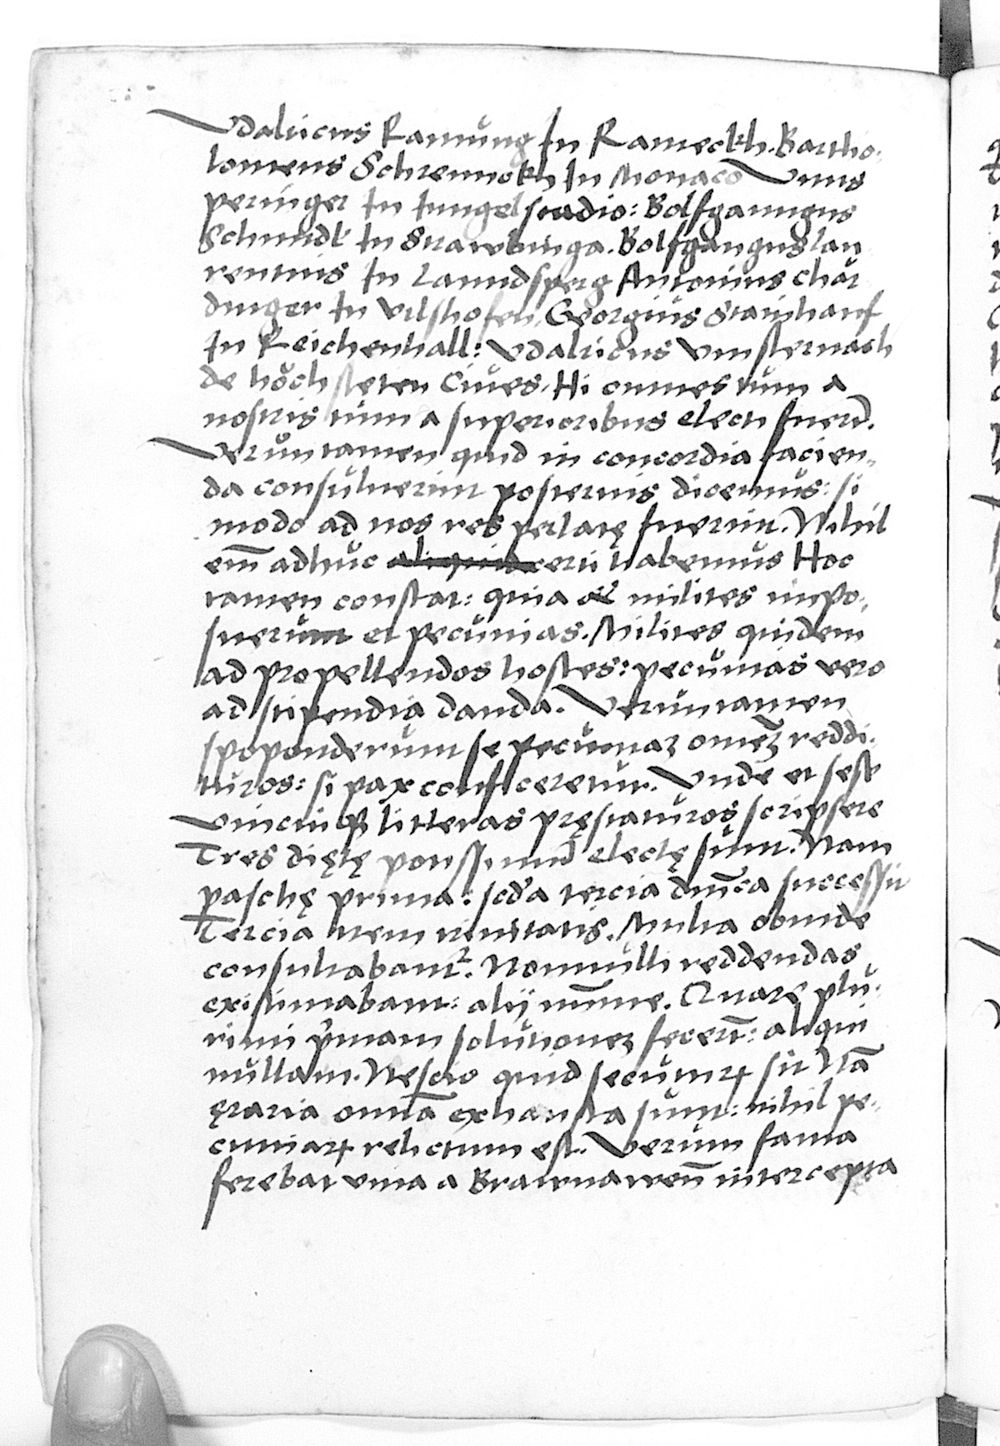 Vdalricus Ramung In Rameckh. Bartho-
lomeus Schrennckh In Monaco Vitus
peringer In Jungelstadio: Bolfganngus
Schmidt In Strawbinga. Bolfgangus Lau
rentius In Lanndsperg Antonius chär
dinger In Vilshofen, Georgius Stainhauf
In Reichenhall: Vdalricus Vinsternach
de höchsteten Ciues. Hi omnes tum a
nostris tum a superioribus electi fuerūt.
Veruntamen quid in concordia facien-
da consuluerint posterius dicemus: si
modo ad nos res perlatę fuerint. Nihil
em̄ adhuc certi habemus Hoc
tamen constat: quia milites impo-
suerunt et pecunias. Milites quidem
ad propellendos hostes: pecunias vero
ad stipendia danda. Veruntamen
spoponderunt se pecuniaz omnez reddi-
turos: si pax conficeretur. Vnde et sese
vinctui ꝑ litteras pręstaturos scripsere
Tres dietę potissimū electę sunt. Nam
paschę prima: scd'a tercia dnīca successit
Tercia item trinitatis. Multa obinde
consultabantᷣ. Nonnulli reddendas
existimabant: alij minime. Quare plu-
rimi p'mam solutionez fecerūt: aliqui
nullam. Nescio quid secuturꝝ sit Nā
ęraria omnia exhausta sunt: nihil pe-
cuniarꝝ relictum est. Verum fama
ferebat vina a Brawnawen̄ intercepta